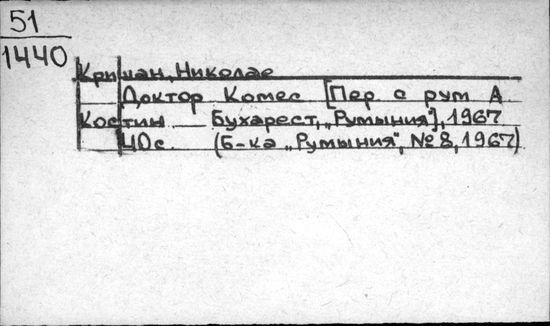 51
1440
Кришан, Николае
Доктор Комес [Пер с рум А
Костин Бухарест, „Румыния"], 1967
40с. (Б-ка „Румыния", № 8, 1967)